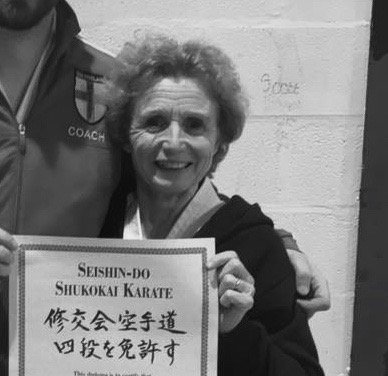 COACH
SEISHIN-DO
SHUKOKAI KARATE
修交会空手道
四段を免許す
This diploma is to certify that